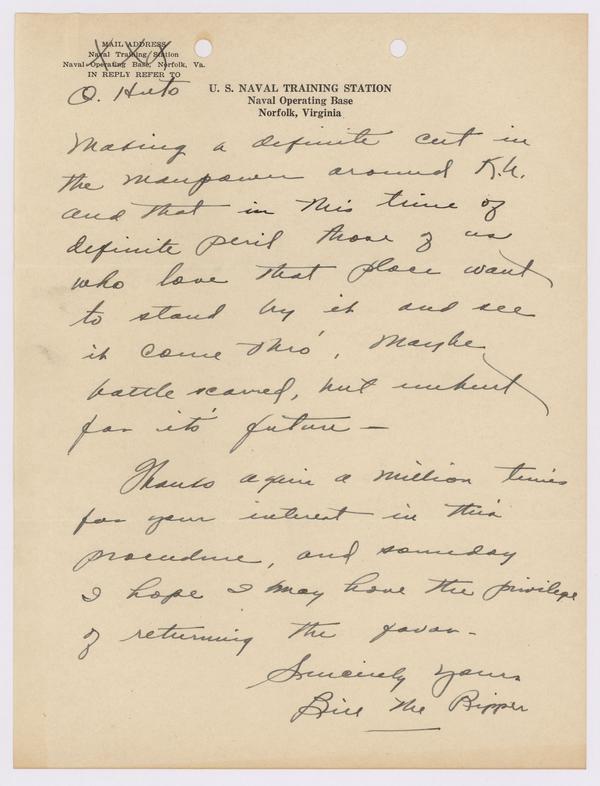 MAIL ADDRESS
Naval Training Station
Naval Operating Base, Norfolk, Va.
IN REPLY REFER TO
U. S. NAVAL TRAINING STATION
Naval Operating Base
Norfolk, Virginia
making a definite cut in
the manpower around K.A.
and that in this time of
definite peril those of us
who love that place want
to stand by it and see
it come thro', maybe
battle scared, but unhurt
for it's future —
Thanks again a million times
for your interest in this
procedure, and someday
I hope I may have the privilege
of returning the favor -
Sincerely yours
Bill the Ripper